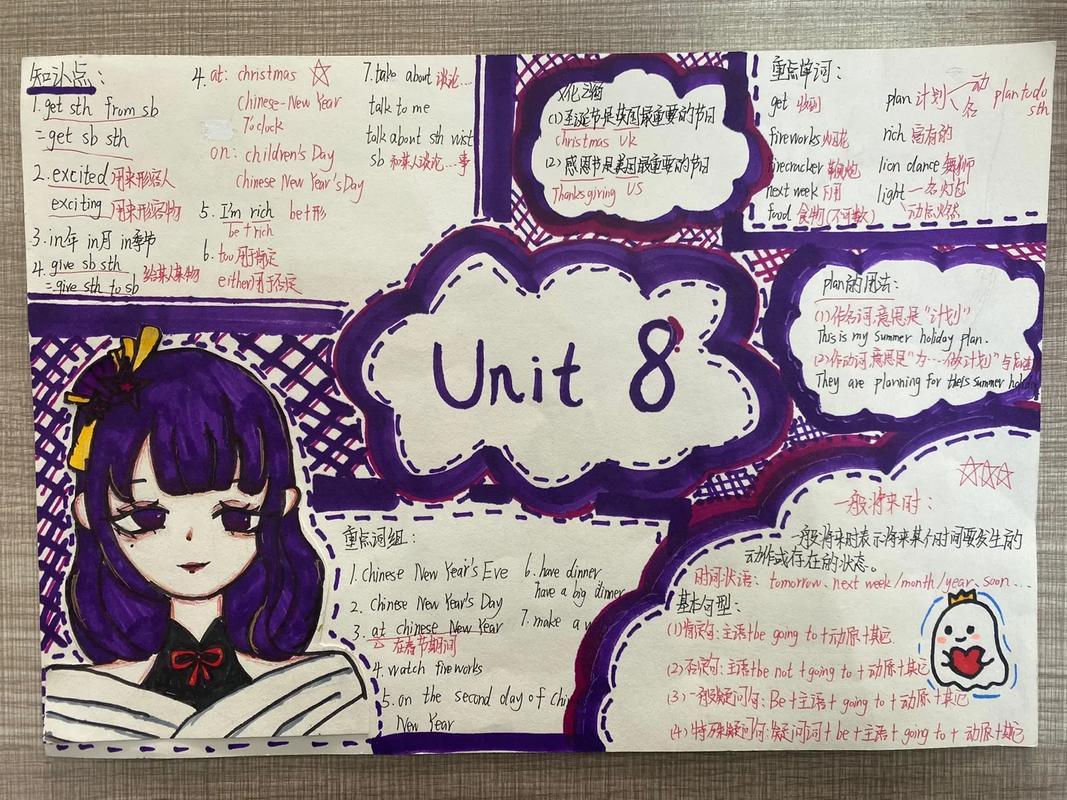 知识点:
1. get sth from sb
= get sb sth
2. excited 用来形容人
exciting 用来形容物
3. in年 in月 in季节
4. give sb sth
= give sth to sb
给某人某物
4. at: christmas
chinese-New Year
7o'clock
on: children's Day
chinese New Year's Day
5. I'm rich be+形
be+rich
6. too 用于肯定
either用于否定
7. take about 谈论...
talk to me
talk about sth wist
sb 和某人谈论...事
文化之窗
(1)圣诞节是英国最重要的节日
christmas UK
(2)感恩节是美国最重要的节日
Thanksgiring US
重点单词:
get 收到
fireworks 烟花
firecracker 鞭炮
next week 下周
food 食物(不可数)
plan 计划 动
名
plan to do
sth
rich 富有的
lion dance 舞狮
light 名 灯
动 点燃
Unit 8
plan的用法:
(1)作名词,意思是"计划"
This is my summer holiday plan.
(2)作动词,意思是"为...做计划" 与for连
They are planning for theis summer holiday
重点词组:
1. chinese New Year's Eve
2. chinese New Year's Day
3. at chinese New Year
在春节期间
4. watch fireworks
5. on the second day of Chi
New Year
6. have dinner
have a big dinner
7. make a w
一般将来时:
一般将来时表示将来某个时间要发生的
动作或存在的状态。
时间状语: tomorrow. next week/month/year、soon...
基本句型:
(1)肯定句:主语+be going to+动原+其它
(2)否定句:主语+be not + going to + 动原+其它
(3)一般疑问句: Be+主语+ going to + 动原+其它
(4)特殊疑问句:疑问词+ be +主语+ going to + 动原+其它